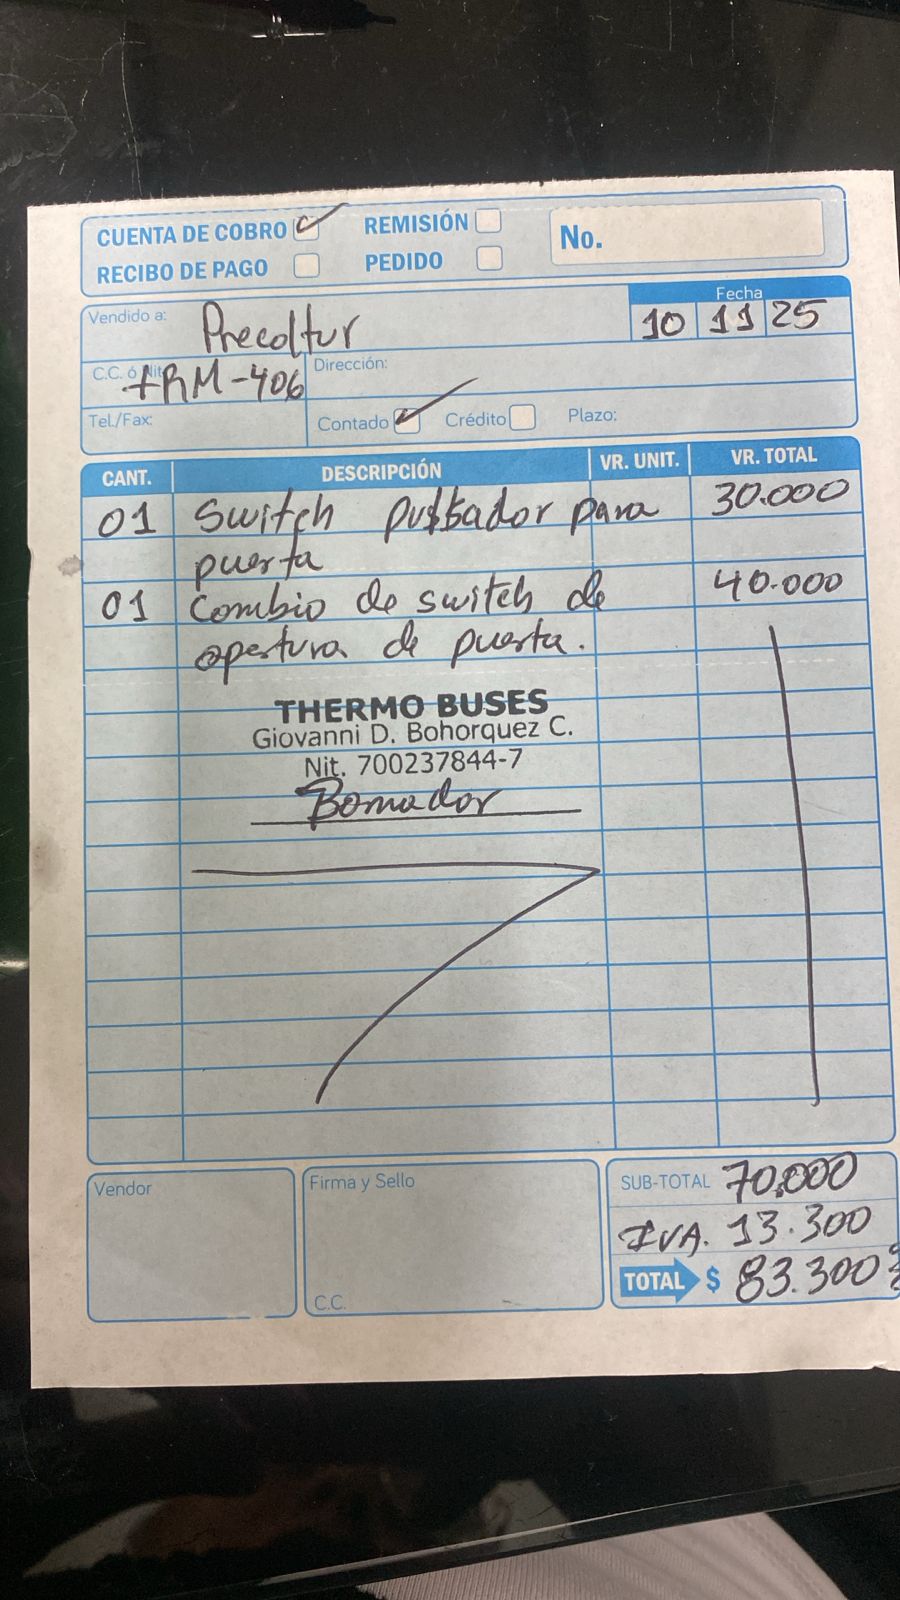 CUENTA DE COBRO REMISIÓN No.
RECIBO DE PAGO PEDIDO
Fecha
Vendido a: Precoltur 10 11 25
C.C. ó Nit: TRM-406 Dirección:
Tel./Fax: Contado Crédito Plazo:
CANT. DESCRIPCIÓN VR. UNIT. VR. TOTAL
01 Switch pulsador para 30.000
puerta
01 Cambio de switch de 40.000
apertura de puerta.
THERMO BUSES
Giovanni D. Bohorquez C.
Nit. 700237844-7
Vendor Firma y Sello SUB-TOTAL 70.000
IVA. 13.300
C.C. TOTAL $ 83.300